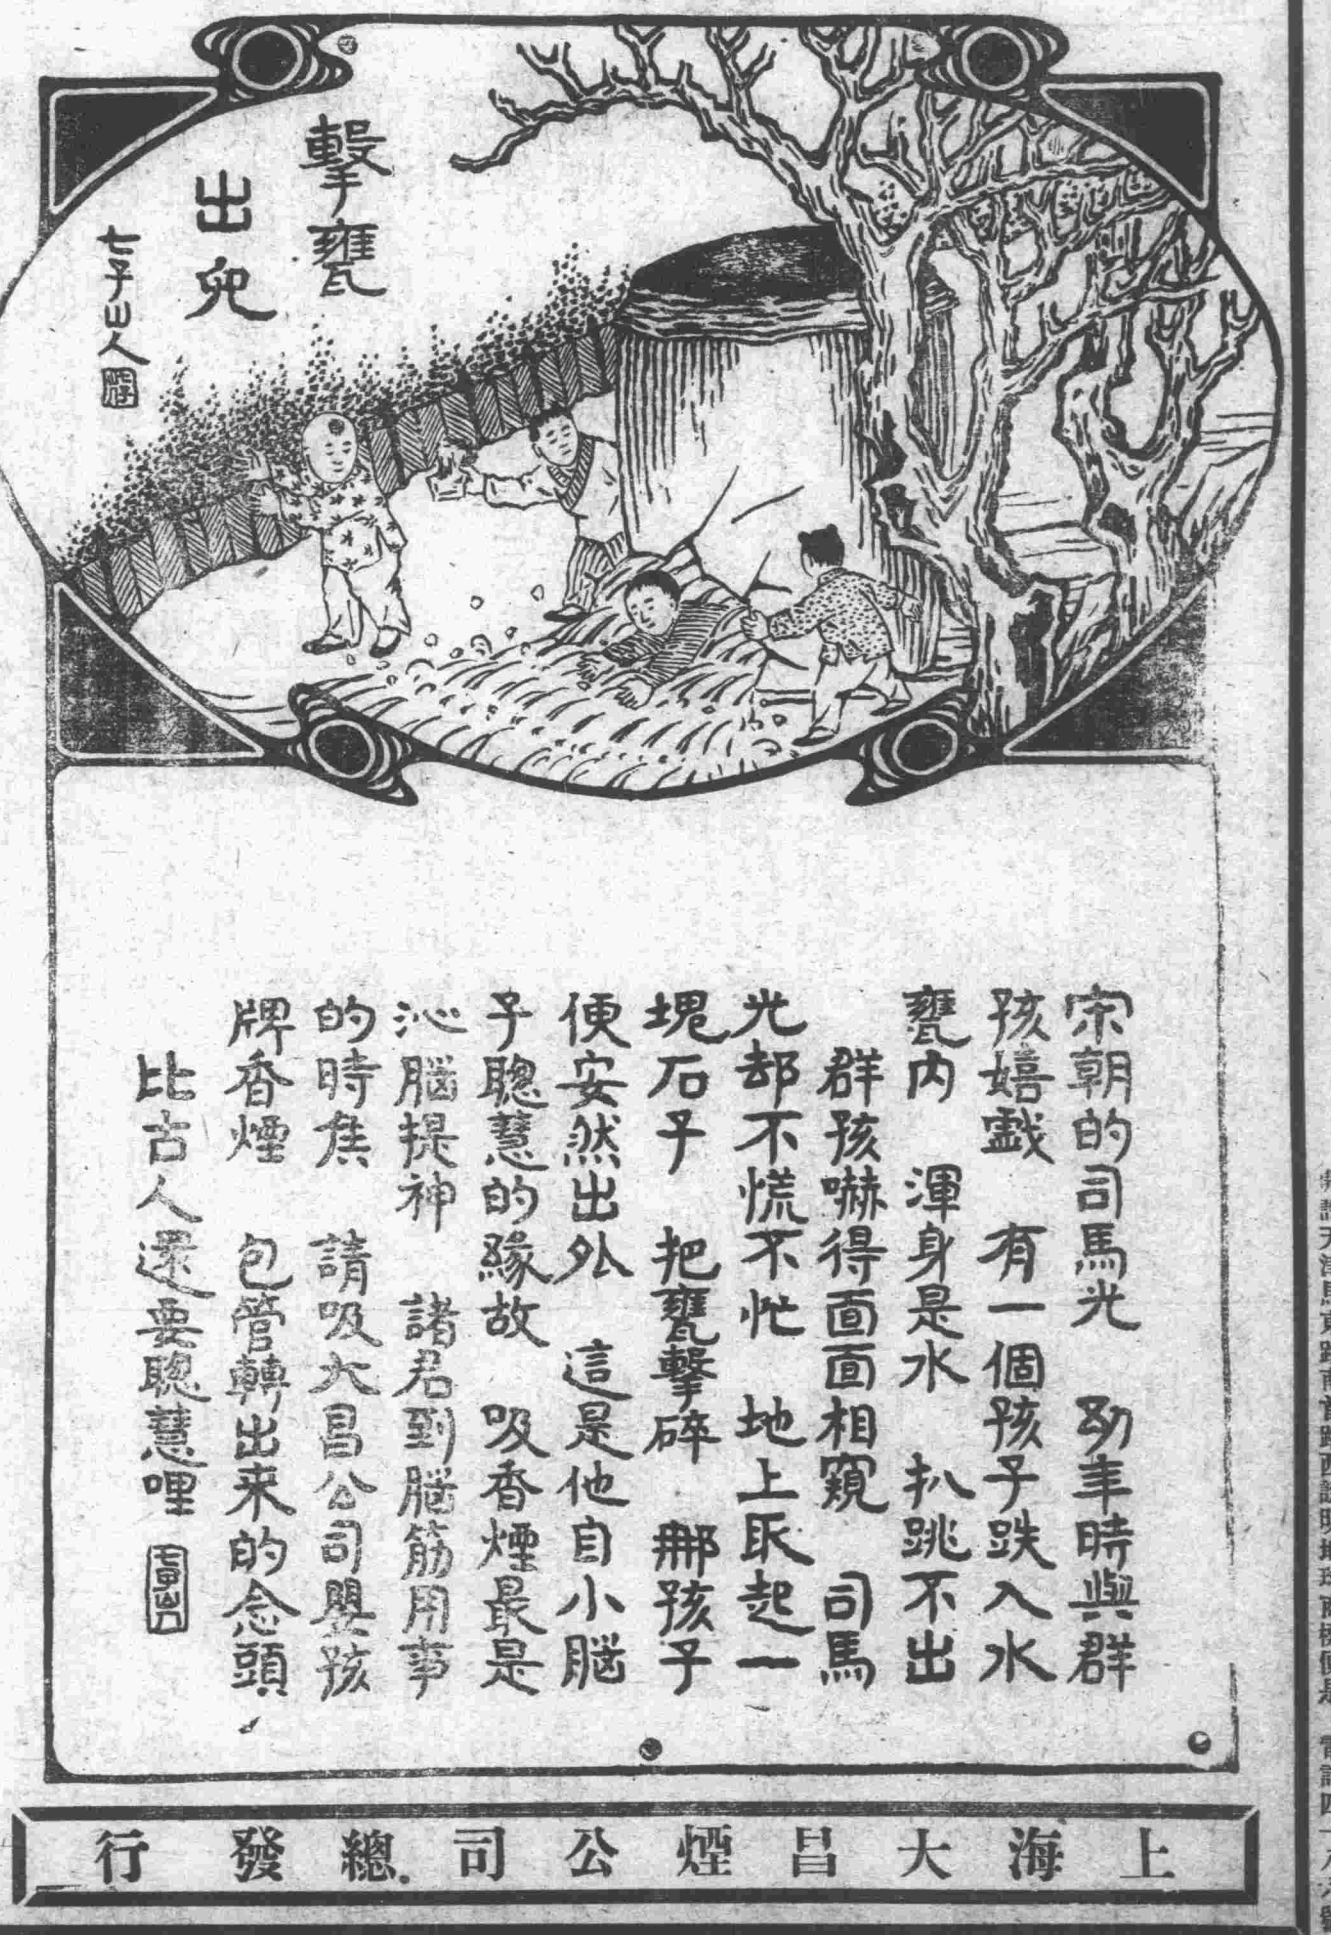 擊甕
出兒
七子山人
宋朝的司馬光　幼年時與群
孩嬉戲　有一個孩子跌入水
甕內　渾身是水　扒跳不出
群孩嚇得面面相窺　司馬
光却不慌不忙　地上取起一
塊石子　把甕擊碎　那孩子
便安然出外　這是他自小腦
子聰慧的緣故　吸香煙最是
沁腦提神　諸君到腦筋用事
的時候　請吸大昌公司嬰孩
牌香煙　包管轉出来的念頭
比古人還要聰慧哩
上海大昌煙公司總發行